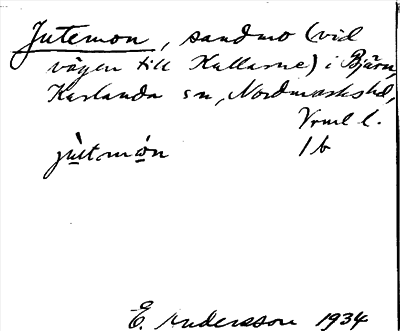 Jutemon, sandmo (vid
vägen till Kullarne) i Bjärn,
Karlanda sn, Nordmarks hd,
Vrml l.
jùtmòn 1b
E. Andersson 1934